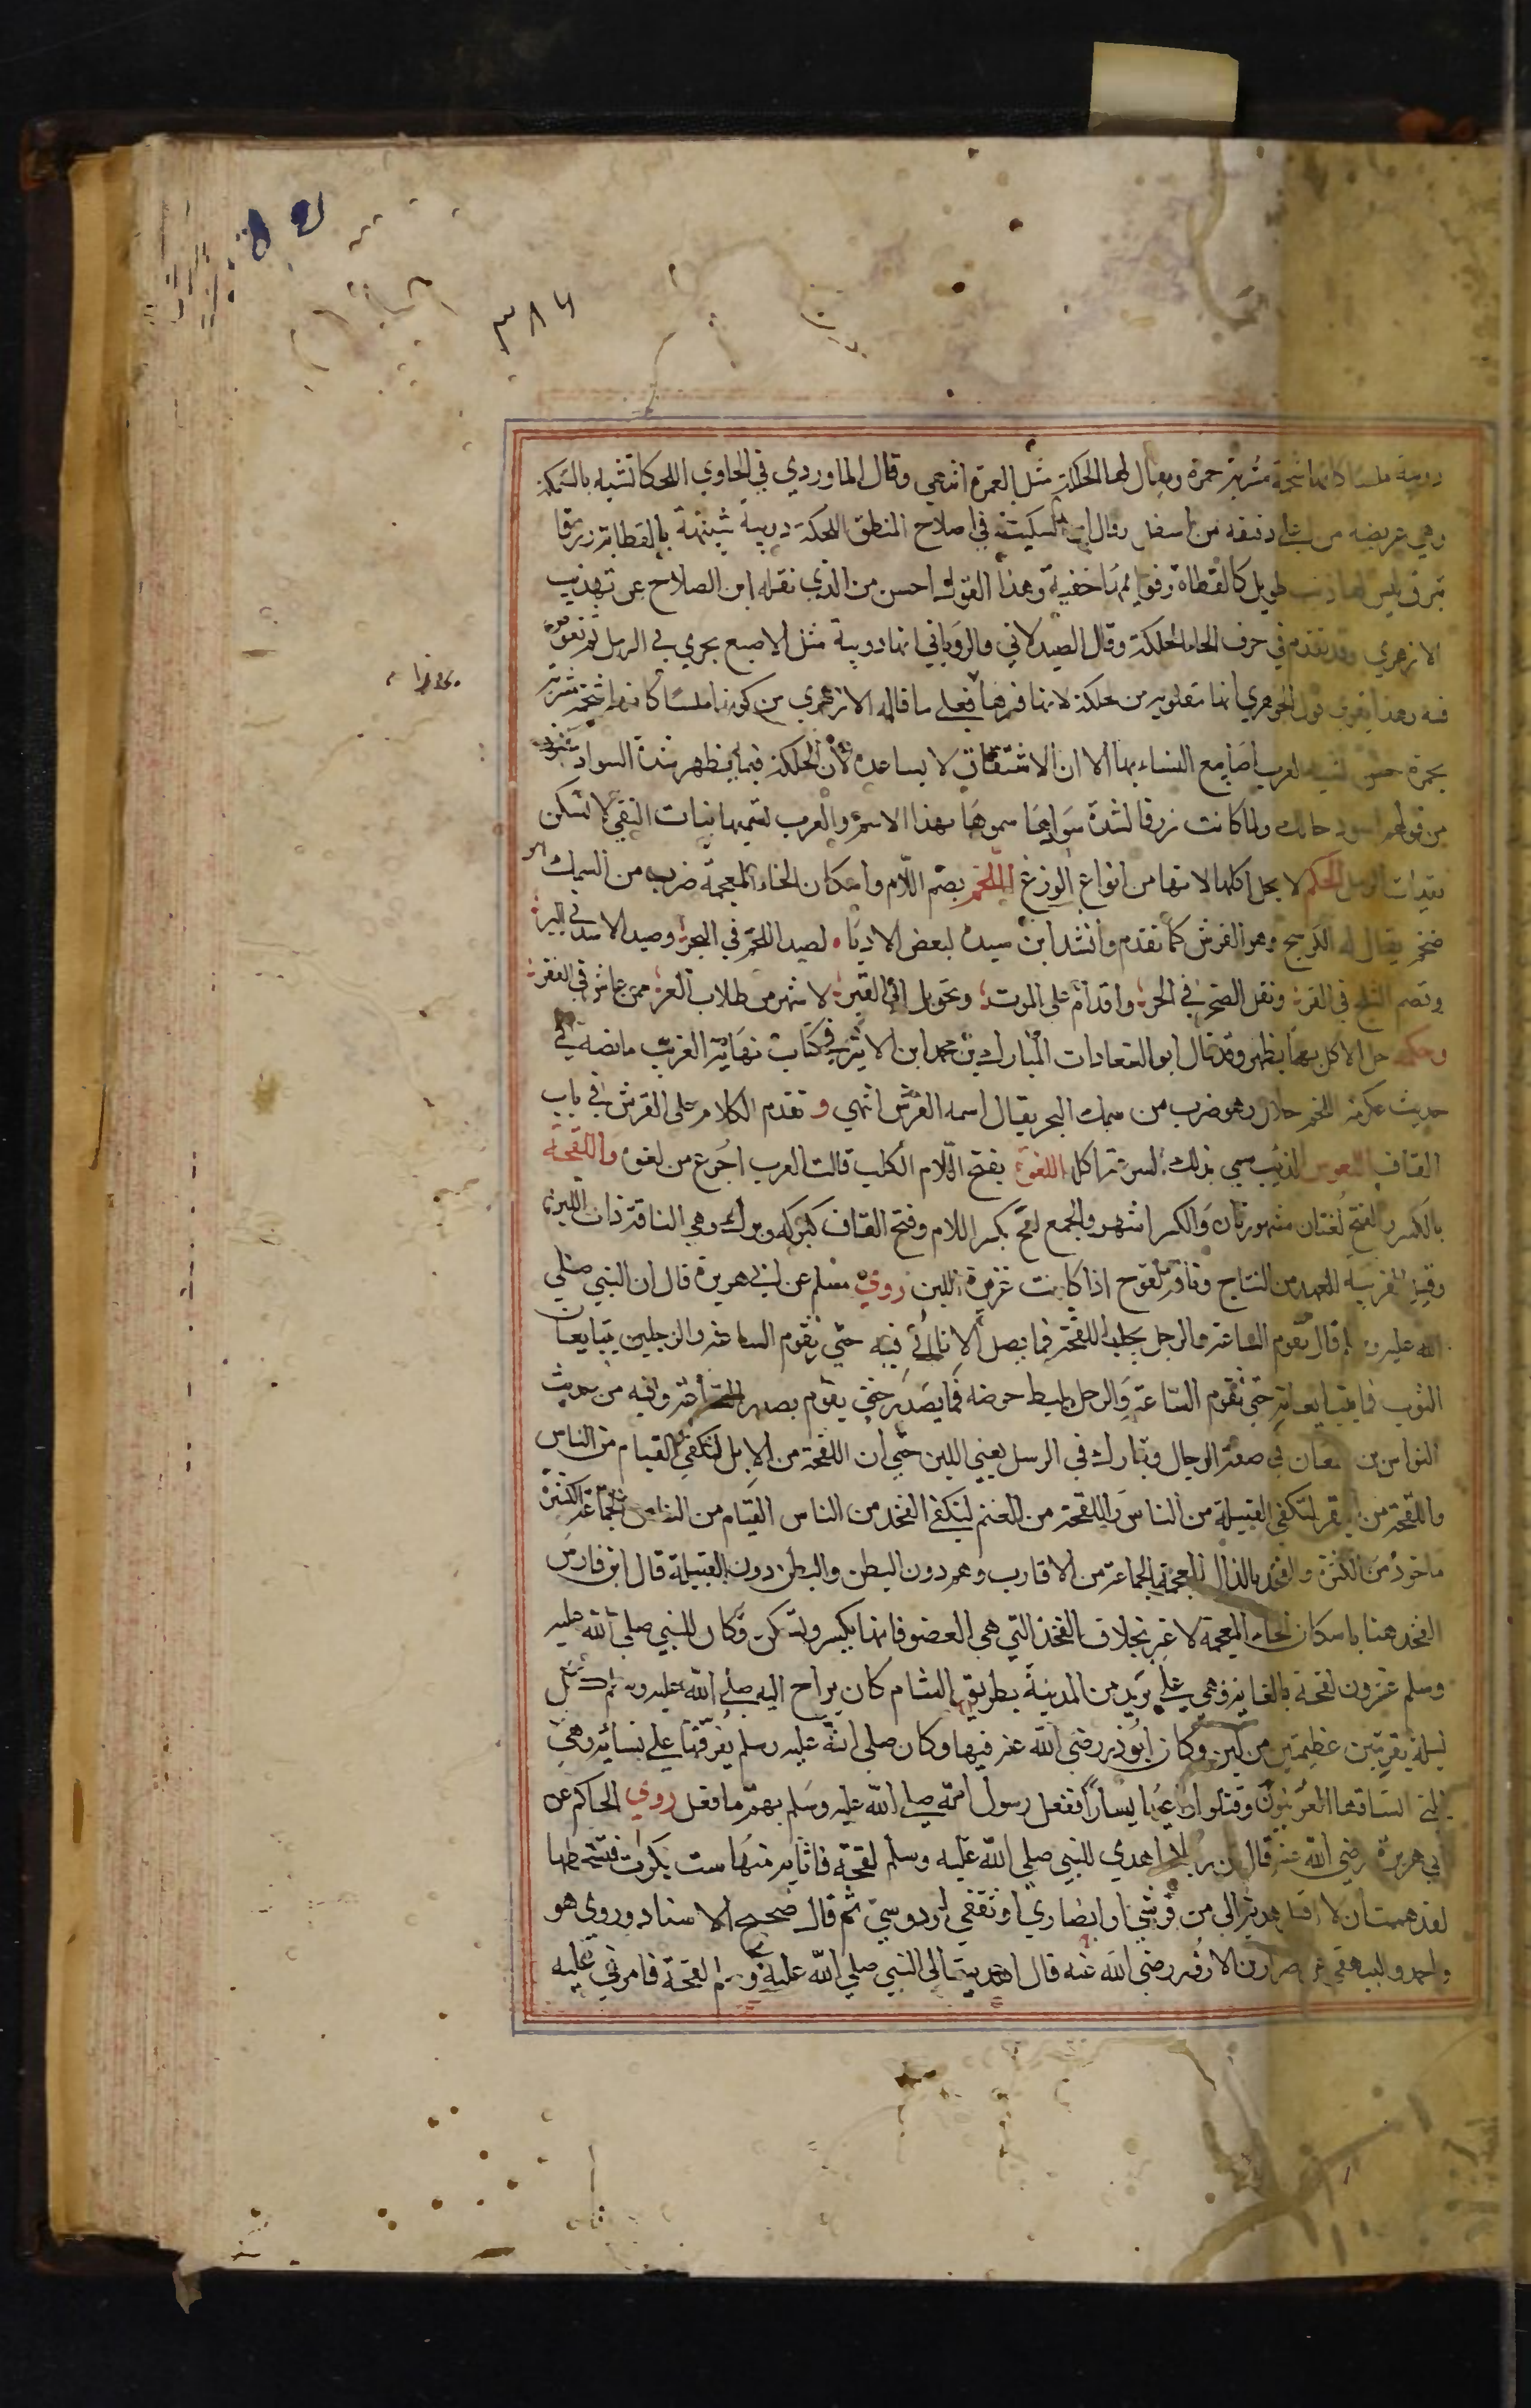 ٣٨٦
دويبة ملسا كانها شحمة مشربة حمرة ويقال لها الحلكة مثل العمرة انتهي وقال الماوردي في الحاوي اللحكا تشبه بالسمكة
وهي عريضة من اعلي دقيقه من اسفل وقال ابن السكيت في اصلاح المنطق اللحكة دويبة شبيهة بالعظاية زرقا
تبرق ليس لها ذنب طويل كالعظاة وقوايمها خفية وهذا القول احسن من الذي نقله ابن الصلاح عن تهذيب
الازهري وقد تقدم في حرف الحا الحلكة وقال الصيدلاني والروياني انها دويبة مثل الاصبع يجري في الرمل ثم تغوص
فيه وهذا يقوي قول الجوهري انها مقلوبه من حلكة لانها فسرها فعلي ما قاله الازهري من كونها ملسا كانها شحمة مشربة
بحمرة حسن تشبيه العرب اصابع النساء بها الا ان الاشتقاق لا يساعده لان الحلكة فيما يظهر شدة السواد
من قولهم اسود حالك ولما كانت زرقا لشدة سوادها سموها بهذا الاسم والعرب تسميها بنات النقي لانها تسكن
نقيات الرمل الحكم لا يحل اكلها لانها من انواع الوزغ اللخم بضم اللام واسكان الخاء المعجمة ضرب من السمك
ضخم يقال له الكوسج وهو القرش كما تقدم وانشد ابن سيده لبعض الادبا لصيد اللخم في البحر وصيد الاسد في البر
وقضم الثلج في القر ونقل الصخر في الحر واقدام علي الموت وتحويل الي القبر لاشهي من طلاب العز ممن عاش في الفقر
وحكمه حل الاكل بما يظهر وقد قال ابو السعادات المبارك بن محمد ابن الاثير في كتاب نهاية الغريب ما نصه في
حديث عكرمة اللخم حلال وهو ضرب من سمك البحر يقال اسمه القرش انتهي وتقدم الكلام علي القرش في باب
القاف اللعوس الذيب سمي بذلك لسرعة اكله اللغوة بفتح اللام الكلب قالت العرب اجوع من لغوة واللقحة
بالكسر والفتح لغتان مشهورتان والكسر اشهر والجمع لقح بكسر اللام وفتح القاف كبركه وبرك وهي الناقة ذات اللبن
وقيل القريبة العهد من النتاج وناقة لقوح اذا كانت غزيرة اللبن روي مسلم عن ابي هريرة قال ان النبي صلي
الله عليه وسلم قال تقوم الساعة والرجل يحلب اللقحة فما يصل الاناء الي فيه حتي تقوم الساعة والرجلين يتبايعان
الثوب فما يتبايعانه حتي تقوم الساعة والرجل يليط حوضه فما يصدر حتي يقوم وفيه من حديث
النواس بن سمعان في صفة الدجال وتبارك في الرسل يعني اللبن حتي ان اللقحة من الابل لتكفي القيام من الناس
واللقحة من البقر لتكفي القبيلة من الناس واللقحة من الغنم لتكفي الفخد من الناس القيام من الناس الجماعة الكثيرة
ماخوذ من الكثرة والفخد بالذال المعجمة الجماعة من الاقارب وهم دون البطن والبطن دون القبيلة قال ابن فارس
الفخد هنا باسكان الخاء المعجمة لا غير بخلاف الفخذ التي هي العضو فانها تكسر وتسكن وكان للنبي صلي الله عليه
وسلم عشرون لقحة بالغابة وهي علي بريد من المدينة بطريق الشام كان يراح اليه صلي الله عليه وسلم كل
ليلة بقربتين عظيمتين من لبن وكان ابو ذر رضي الله عنه فيها وكان صلي الله عليه وسلم يفرقها علي نسائه وهي
التي استاقها العرنيون وقتلوا راعيها يسارا ففعل رسول الله صلي الله عليه وسلم بهم ما فعل روي الحاكم عن
ابي هريرة رضي الله عنه قال ان رجلا اهدي للنبي صلي الله عليه وسلم لقحة فاثابه منها ست بكرات فتسخطها
لقد هممت ان لا اقبل هدية الا من قرشي او انصاري او ثقفي او دوسي ثم قال صحيح الاسناد وروي هو
واحمد والبيهقي عن ضرار بن الازور رضي الله عنه قال اهديت الي النبي صلي الله عليه وسلم لقحة فامرني عليه